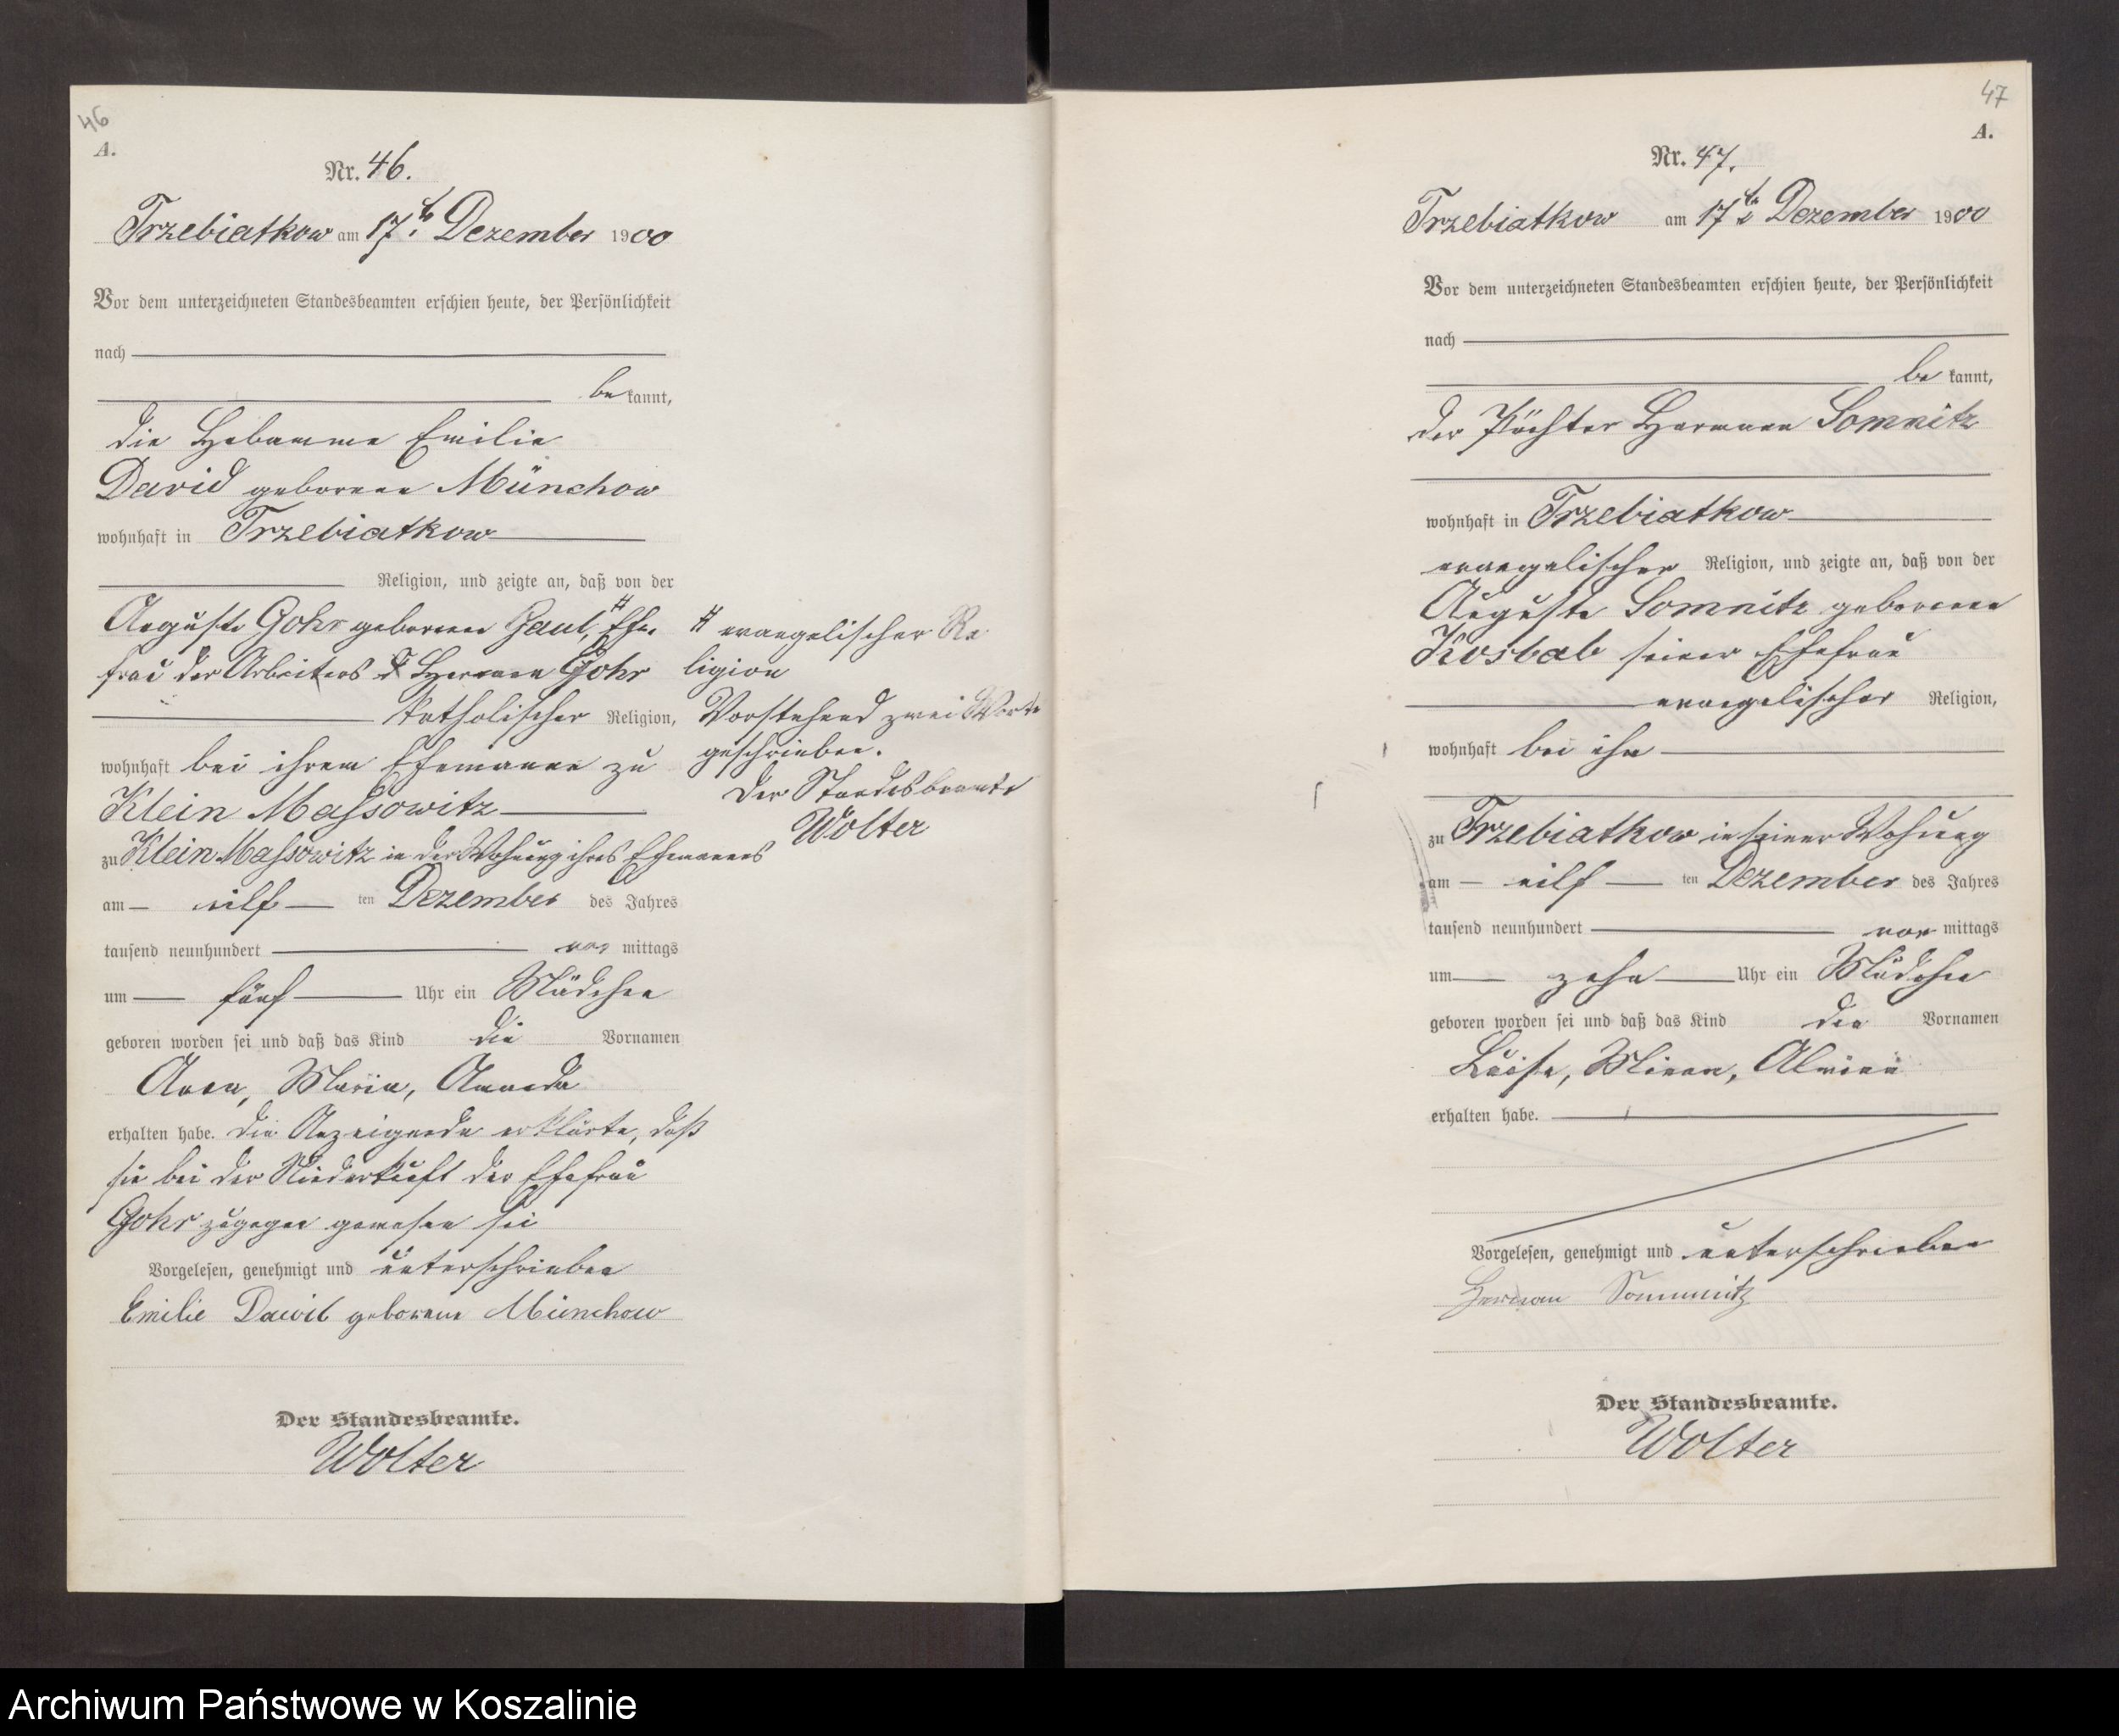 46
A.
Nr. 46.
Trzebiatkow am 17ten Dezember 1900
Vor dem unterzeichneten Standesbeamten erschien heute, der Persönlichkeit
nach
be kannt,
die Hebamme Emilie
David geborene Münchow
wohnhaft in Trzebiatkow
Religion, und zeigte an, daß von der
Auguste Gohr geborenen Gaul, # Ehe-
frau des Arbeiters Herman Gohr
katholischer Religion,
wohnhaft bei ihrem Ehemanne zu
Klein Massowitz
zu Klein Massowitz in der Wohnung ihres Ehemannes
am eilf ten Dezember des Jahres
tausend neunhundert vor mittags
um fünf Uhr ein Mädchen
geboren worden sei und daß das Kind die Vornamen
Anna, Maria, Amanda
erhalten habe. Die Anzeigende erklärte, daß
sie bei der Niederkunft der Ehefrau
Gohr zugegen gewesen sei
Vorgelesen, genehmigt und unterschrieben
Emilie Dawid geborene Münchow
Der Standesbeamte.
Wolter
# evangelischer Re
ligion
Vorstehend zwei Worte
geschrieben.
Der Standesbeamte
Wolter
47
A.
Nr. 47.
Trzebiatkow am 17ten Dezember 1900
Vor dem unterzeichneten Standesbeamten erschien heute, der Persönlichkeit
nach
be kannt,
der Pächter Herman Somnitz
wohnhaft in Trzebiatkow
evangelischer Religion, und zeigte an, daß von der
Auguste Somnitz geborenen
Kosbab seiner Ehefrau
evangelischer Religion,
wohnhaft bei ihm
zu Trzebiatkow in seiner Wohnung
am eilf ten Dezember des Jahres
tausend neunhundert vor mittags
um zehn Uhr ein Mädchen
geboren worden sei und daß das Kind die Vornamen
Luise, Minna, Alwine
erhalten habe.
Vorgelesen, genehmigt und unterschrieben
Herman Sommnitz
Der Standesbeamte.
Wolter
Archiwum Państwowe w Koszalinie